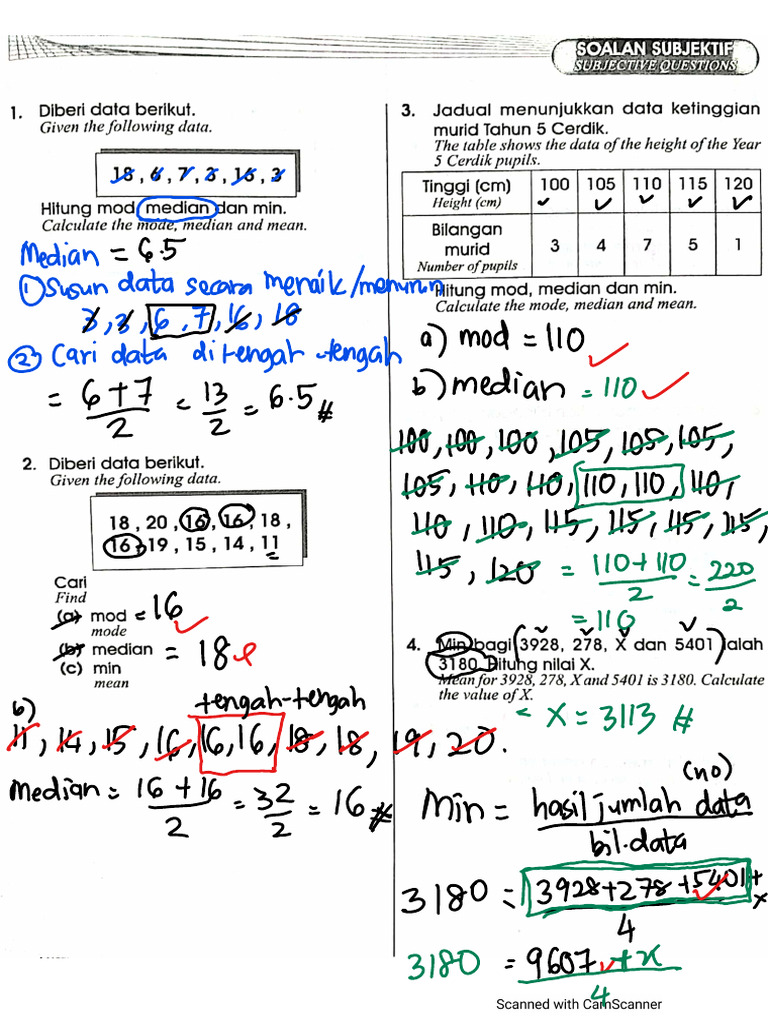 SOALAN SUBJEKTIF
SUBJECTIVE QUESTIONS
1. Diberi data berikut.
Given the following data.
18 , 6 , 7 , 3 , 16 , 3
Hitung mod median dan min.
Calculate the mode, median and mean.
Median = 6.5
① Susun data secara menaik/menurun
3, 3, 6, 7, 16, 18
② Cari data di tengah-tengah
= 6+7/2 = 13/2 = 6.5 #
2. Diberi data berikut.
Given the following data.
18 , 20 , 16 , 16 , 18 ,
16 , 19 , 15 , 14 , 11
Cari
Find
(a) mod = 16
mode
(b) median = 18
median
(c) min
mean
b) tengah-tengah
11, 14, 15, 16, 16, 16, 18, 18, 19, 20.
Median = 16+16/2 = 32/2 = 16 #
3. Jadual menunjukkan data ketinggian
murid Tahun 5 Cerdik.
The table shows the data of the height of the Year
5 Cerdik pupils.
Tinggi (cm) 100 105 110 115 120
Height (cm)
Bilangan
murid 3 4 7 5 1
Number of pupils
Hitung mod, median dan min.
Calculate the mode, median and mean.
a) mod = 110
b) median = 110
100, 100, 100, 105, 105, 105,
105, 110, 110, 110, 110, 110,
110, 110, 115, 115, 115, 115,
115, 120 = 110+110/2 = 220/2
= 110
4. Min bagi 3928, 278, X dan 5401 ialah
3180. Hitung nilai X.
Mean for 3928, 278, X and 5401 is 3180. Calculate
the value of X.
X = 3113 #
(no)
Min = hasil jumlah data/bil.data
3180 = 3928+278+5401+x/4
3180 = 9607+x/4
Scanned with CamScanner